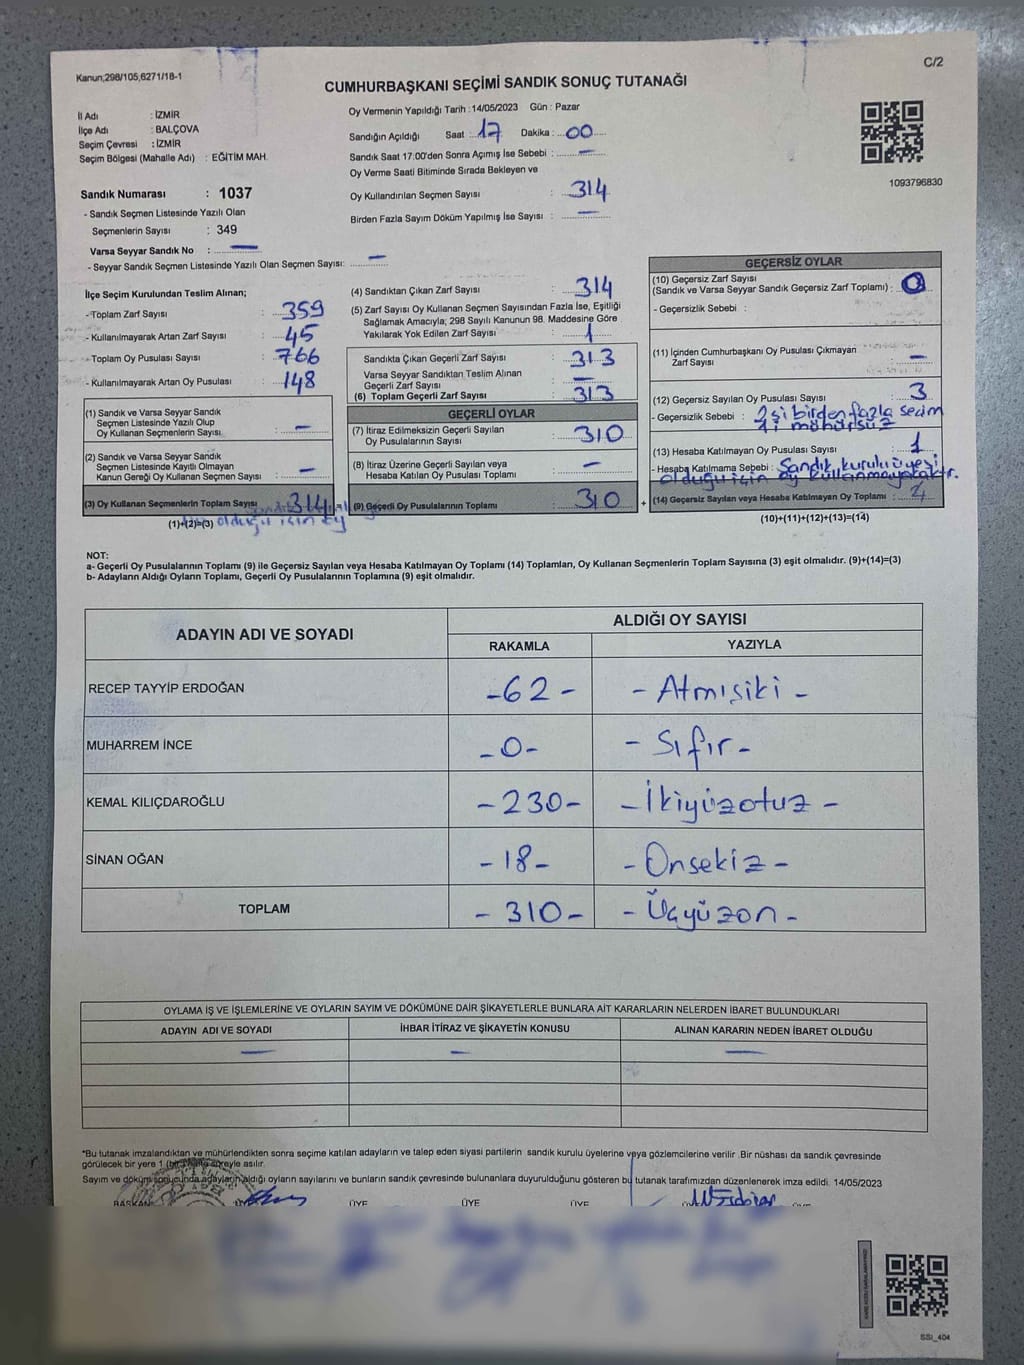 Kanun;298/105,6271/18-1
C/2
CUMHURBAŞKANI SEÇİMİ SANDIK SONUÇ TUTANAĞI
İl Adı : İZMİR
İlçe Adı : BALÇOVA
Seçim Çevresi : İZMİR
Seçim Bölgesi (Mahalle Adı) : EĞİTİM MAH.
Sandık Numarası : 1037
- Sandık Seçmen Listesinde Yazılı Olan
Seçmenlerin Sayısı : 349
Varsa Seyyar Sandık No : —
- Seyyar Sandık Seçmen Listesinde Yazılı Olan Seçmen Sayısı: —
Oy Vermenin Yapıldığı Tarih :14/05/2023 Gün : Pazar
Sandığın Açıldığı Saat : 17 Dakika : 00
Sandık Saat 17:00'den Sonra Açımış İse Sebebi : —
Oy Verme Saati Bitiminde Sırada Bekleyen ve
Oy Kullandırılan Seçmen Sayısı : 314
Birden Fazla Sayım Döküm Yapılmış İse Sayısı : —
1093796830
İlçe Seçim Kurulundan Teslim Alınan;
- Toplam Zarf Sayısı : 359
- Kullanılmayarak Artan Zarf Sayısı : 45
- Toplam Oy Pusulası Sayısı : 766
- Kullanılmayarak Artan Oy Pusulası : 148
(1) Sandık ve Varsa Seyyar Sandık
Seçmen Listesinde Yazılı Olup
Oy Kullanan Seçmenlerin Sayısı : —
(2) Sandık ve Varsa Seyyar Sandık
Seçmen Listesinde Kayıtlı Olmayan
Kanun Gereği Oy Kullanan Seçmen Sayısı : —
(3) Oy Kullanan Seçmenlerin Toplam Sayısı : 314
(1)+(2)=(3) olduğu için oy
(4) Sandıktan Çıkan Zarf Sayısı : 314
(5) Zarf Sayısı Oy Kullanan Seçmen Sayısından Fazla İse, Eşitliği
Sağlamak Amacıyla; 298 Sayılı Kanunun 98. Maddesine Göre
Yakılarak Yok Edilen Zarf Sayısı : 1
Sandıkta Çıkan Geçerli Zarf Sayısı : 313
Varsa Seyyar Sandıktan Teslim Alınan
Geçerli Zarf Sayısı : —
(6) Toplam Geçerli Zarf Sayısı : 313
GEÇERLİ OYLAR
(7) İtiraz Edilmeksizin Geçerli Sayılan
Oy Pusulalarının Sayısı : 310
(8) İtiraz Üzerine Geçerli Sayılan veya
Hesaba Katılan Oy Pusulası Toplamı : —
= (9) Geçerli Oy Pusulalarının Toplamı : 310 +
GEÇERSİZ OYLAR
(10) Geçersiz Zarf Sayısı
(Sandık ve Varsa Seyyar Sandık Geçersiz Zarf Toplamı) : 0
- Geçersizlik Sebebi :
(11) İçinden Cumhurbaşkanı Oy Pusulası Çıkmayan
Zarf Sayısı : —
(12) Geçersiz Sayılan Oy Pusulası Sayısı : 3
- Geçersizlik Sebebi : 2 si birden fazla secim
1 i mühürsüz
(13) Hesaba Katılmayan Oy Pusulası Sayısı : 1
- Hesaba Katılmama Sebebi : Sandık kurulu üyesi
olduğu için oy kullanmayacaktır.
(14) Geçersiz Sayılan veya Hesaba Katılmayan Oy Toplamı : 4
(10)+(11)+(12)+(13)=(14)
NOT:
a- Geçerli Oy Pusulalarının Toplamı (9) ile Geçersiz Sayılan veya Hesaba Katılmayan Oy Toplamı (14) Toplamları, Oy Kullanan Seçmenlerin Toplam Sayısına (3) eşit olmalıdır. (9)+(14)=(3)
b- Adayların Aldığı Oyların Toplamı, Geçerli Oy Pusulalarının Toplamına (9) eşit olmalıdır.
ADAYIN ADI VE SOYADI ALDIĞI OY SAYISI
RAKAMLA YAZIYLA
RECEP TAYYİP ERDOĞAN -62- - Atmışiki -
MUHARREM İNCE -0- - Sıfır -
KEMAL KILIÇDAROĞLU -230- - İkiyüzotuz -
SİNAN OĞAN -18- - Onsekiz -
TOPLAM -310- - Üçyüzon -
OYLAMA İŞ VE İŞLEMLERİNE VE OYLARIN SAYIM VE DÖKÜMÜNE DAİR ŞİKAYETLERLE BUNLARA AİT KARARLARIN NELERDEN İBARET BULUNDUKLARI
ADAYIN ADI VE SOYADI İHBAR İTİRAZ VE ŞİKAYETİN KONUSU ALINAN KARARIN NEDEN İBARET OLDUĞU
— — —
*Bu tutanak imzalandıktan ve mühürlendikten sonra seçime katılan adayların ve talep eden siyasi partilerin sandık kurulu üyelerine veya gözlemcilerine verilir .Bir nüshası da sandık çevresinde
görülecek bir yere 1 (bir) hafta süreyle asılır.
Sayım ve döküm sonucunda adayların aldığı oyların sayılarını ve bunların sandık çevresinde bulunanlara duyurulduğunu gösteren bu tutanak tarafımızdan düzenlenerek imza edildi. 14/05/2023
BAŞKAN ÜYE ÜYE ÜYE ÜYE
SSI_404